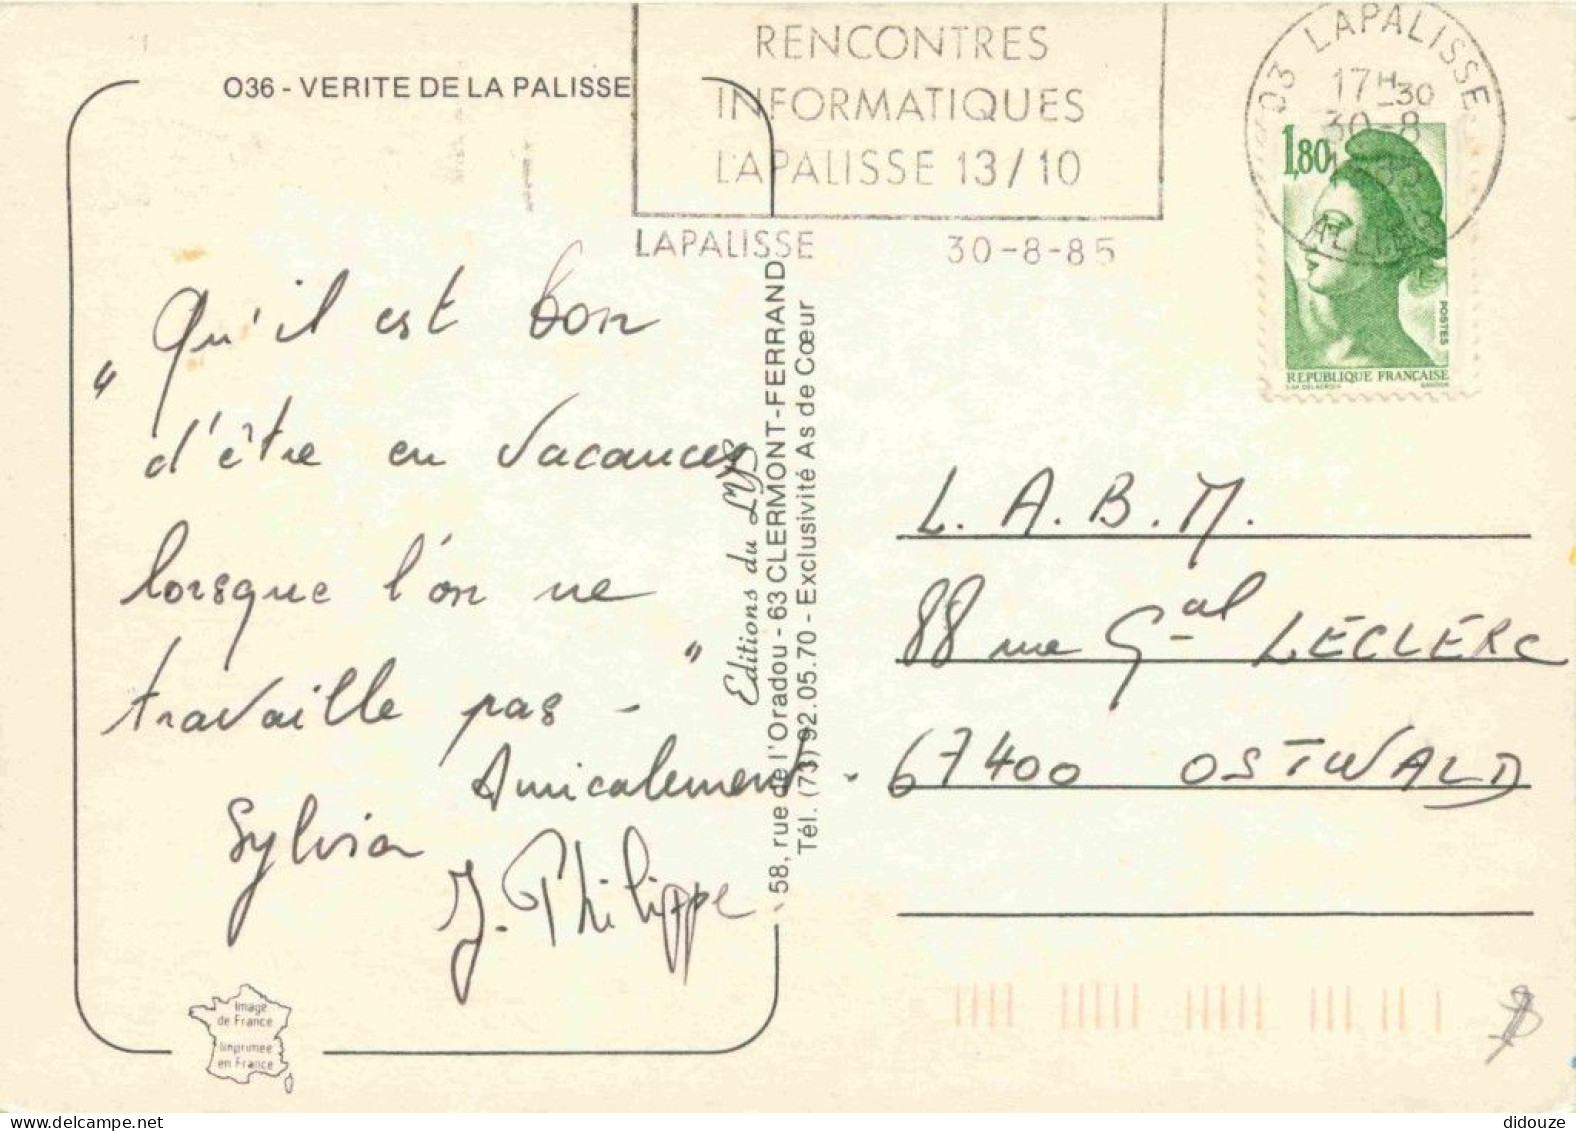 O36 - VERITE DE LA PALISSE
RENCONTRES
INFORMATIQUES
LAPALISSE 13/10
LAPALISSE 30-8-85
03 LAPALISSE
17H-30
30-8
ALLIER
1,80
POSTES
REPUBLIQUE FRANÇAISE
"Qu'il est bon
d'être en vacances
lorsque l'on ne
travaille pas - "
Amicalement -
Sylvia
J. Philippe
Editions du LYS
58, rue de l'Oradou - 63 CLERMONT-FERRAND
Tél. (73) 92.05.70 - Exclusivité As de Cœur
L. A. B. M.
88 rue Gal LECLERC
67400 OSTWALD
Image
de France
Imprimée
en France
didouze